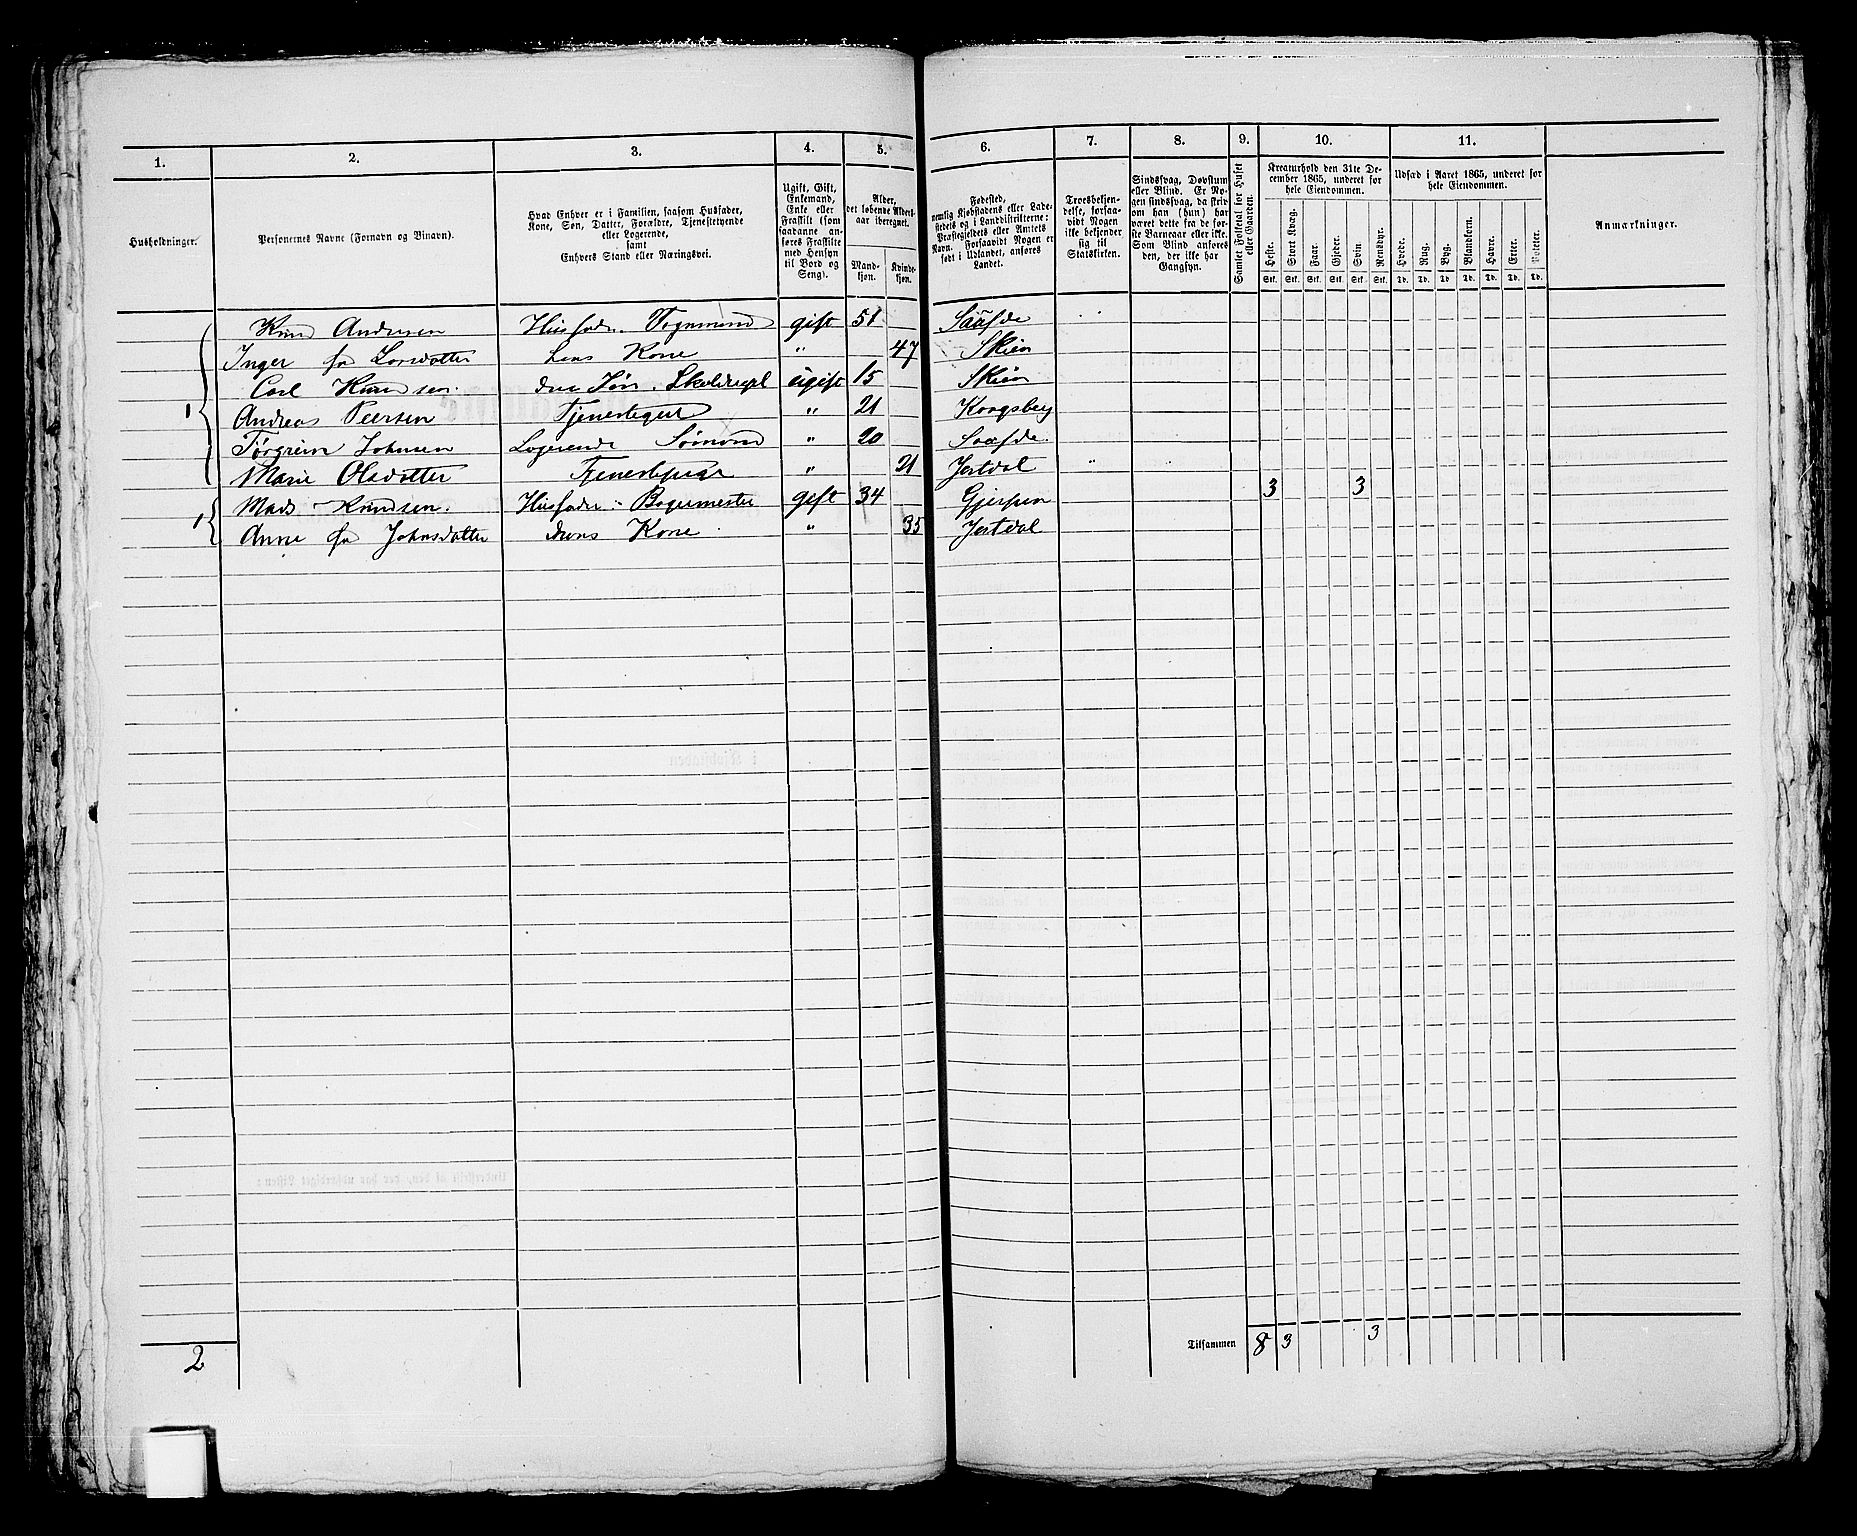 1. 2. 3. 4. 5. 6. 7. 8. 9. 10. 11.
Husholdninger.
Personernes Navne (Fornavn og Binavn).
Hvad Enhver er i Familien, saasom Husfader,
Kone, Søn, Datter, Forældre, Tjenestetyende
eller Logerende,
samt
Enhvers Stand eller Næringsvei.
Ugift, Gift,
Enkemand,
Enke eller
Fraskilt (som
saadanne an-
føres Fraskilte
med Hensyn
til Bord og
Seng).
Alder,
det løbende Alders-
aar iberegnet.
Mand-
kjøn.
Kvinde-
kjøn.
Fødested,
nemlig Kjøbstadens eller Lade-
stedets og i Landdistrikterne:
Præstegjeldets eller Amtets
Navn. Forsaavidt Nogen er
født i Udlandet, anføres
Landet.
Troesbekjen-
delse, forsaa-
vidt Nogen
ikke bekjender
sig til
Statskirken.
Sindssvag, Døvstum
eller Blind. Er No-
gen sindssvag, da skriv
om han (hun) har
været dette fra de før-
ste Barneaar eller ikke.
Som Blind anføres
den, der ikke har
Gangsyn.
Samlet Folketal for Huset
eller Gaarden.
Kreaturhold den 31te De-
cember 1865, underet for
hele Eiendommen.
Heste. Stort Kvæg. Faar. Gjeder. Svin Rensdyr.
Stk. Stk. Stk. Stk. Stk. Stk.
Udsæd i Aaret 1865, underet for
hele Eiendommen.
Hvede. Rug. Byg. Blandkorn. Havre. Erter. Poteter.
Td. Td. Td. Td. Td. Td. Td.
Anmærkninger.
Knud Andersen Husfader. Vognmand gift 51
Inger fød Larsdatter hans Kone " 47 Skien
1 Carl Knudsen. ugift 15 Skien
Andreas Peersen " 21 Kongsberg
Johnsen Logerende Sømand " 20
Marie Olsdatter " 21
1 Mads Knudsen. Husfader gift 34 Gjerpen 3 3
Anne fød Johnsdatter hans Kone " 35
2
Tilsammen 8 3 3